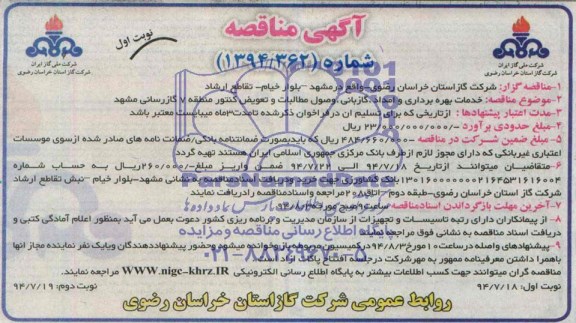 آگهی مناقصه
نوبت اول
شماره (۱۳۹۴/۳۶۲)
شرکت ملی گاز ایران
شرکت گاز استان خراسان رضوی
شرکت ملی گاز ایران
شرکت گاز استان خراسان رضوی
۱-مناقصه گزار: شرکت گازاستان خراسان رضوی-واقع درمشهد -بلوار خیام- تقاطع ارشاد
۲-موضوع مناقصه: خدمات بهره برداری و امداد، گازبانی، وصول مطالبات و تعویض کنتور منطقه ۷ گازرسانی مشهد
۳-مدت اعتبار پیشنهادها : ازتاریخی که برای تسلیم آن درفراخوان ذکرشده تامدت ۳ماه میبایست معتبر باشد
۴-مبلغ حدودی برآورد: ۲۳/۰۰۰/۰۰۰/۰۰۰- ریال
۵-مبلغ ضمین شرکت در مناقصه: ۴۸۴/۶۰۰/۰۰۰- ریال که بایدبصورت ضمانتنامه بانکی/ضمانت نامه های صادر شده ازسوی موسسات
اعتباری غیربانکی که دارای مجوز لازم ازطرف بانک مرکزی جمهوری اسلامی ایران هستند تهیه گردد
۶-متقاضیان میتوانند ازتاریخ ۹۴/۷/۱۸ الی ۹۴/۷/۲۲ ضمن واریز مبلغ/۲۶۰/۰۰۰-ریال به حساب شماره
بانک کشاورزی جهت خرید ودریافت اسنادمناقصه به نشانی مشهد-بلوار خیام -نبش تقاطع ارشاد
شرکت گاز استان خراسان رضوی-طبقه دوم-اتاق۲۰۸ مراجعه واسنادمناقصه رادریافت نمایند
۷-آخرین مهلت بازگرداندن اسنادمناقصه
۸-از پیمانکاران دارای رتبه تاسیسات و تجهیزات از سازمان مدیریت و برنامه ریزی کشور دعوت بعمل می آید بمنظور اعلام آمادگی کتبی و
دریافت اسناد مناقصه به نشانی فوق مراجعه نمایند
۹-پیشنهادهای واصله درساعت ۱۰مورخ ۹۴/۸/۳ درکمیسیون مربوطه بازوخوانده میشود وحضور پیشنهاددهندگان ویایک نفر نماینده مجاز آنها
باهمراه داشتن معرفینامه ممهور به مهرشرکت درجلسه افتتاح پاکات آزاد است
مناقصه گران میتوانند جهت کسب اطلاعات بیشتر به پایگاه اطلاع رسانی الکترونیکی WWW.nigc-khrz.IR مراجعه نمایند.
نوبت اول: ۹۴/۷/۱۸
نوبت دوم: ۹۴/۷/۱۹
روابط عمومی شرکت گازاستان خراسان رضوی
پایگاه اطلاع رسانی مناقصه و مزایده
۰۲۱-۸۸۳۴۹۶۷۰-۵